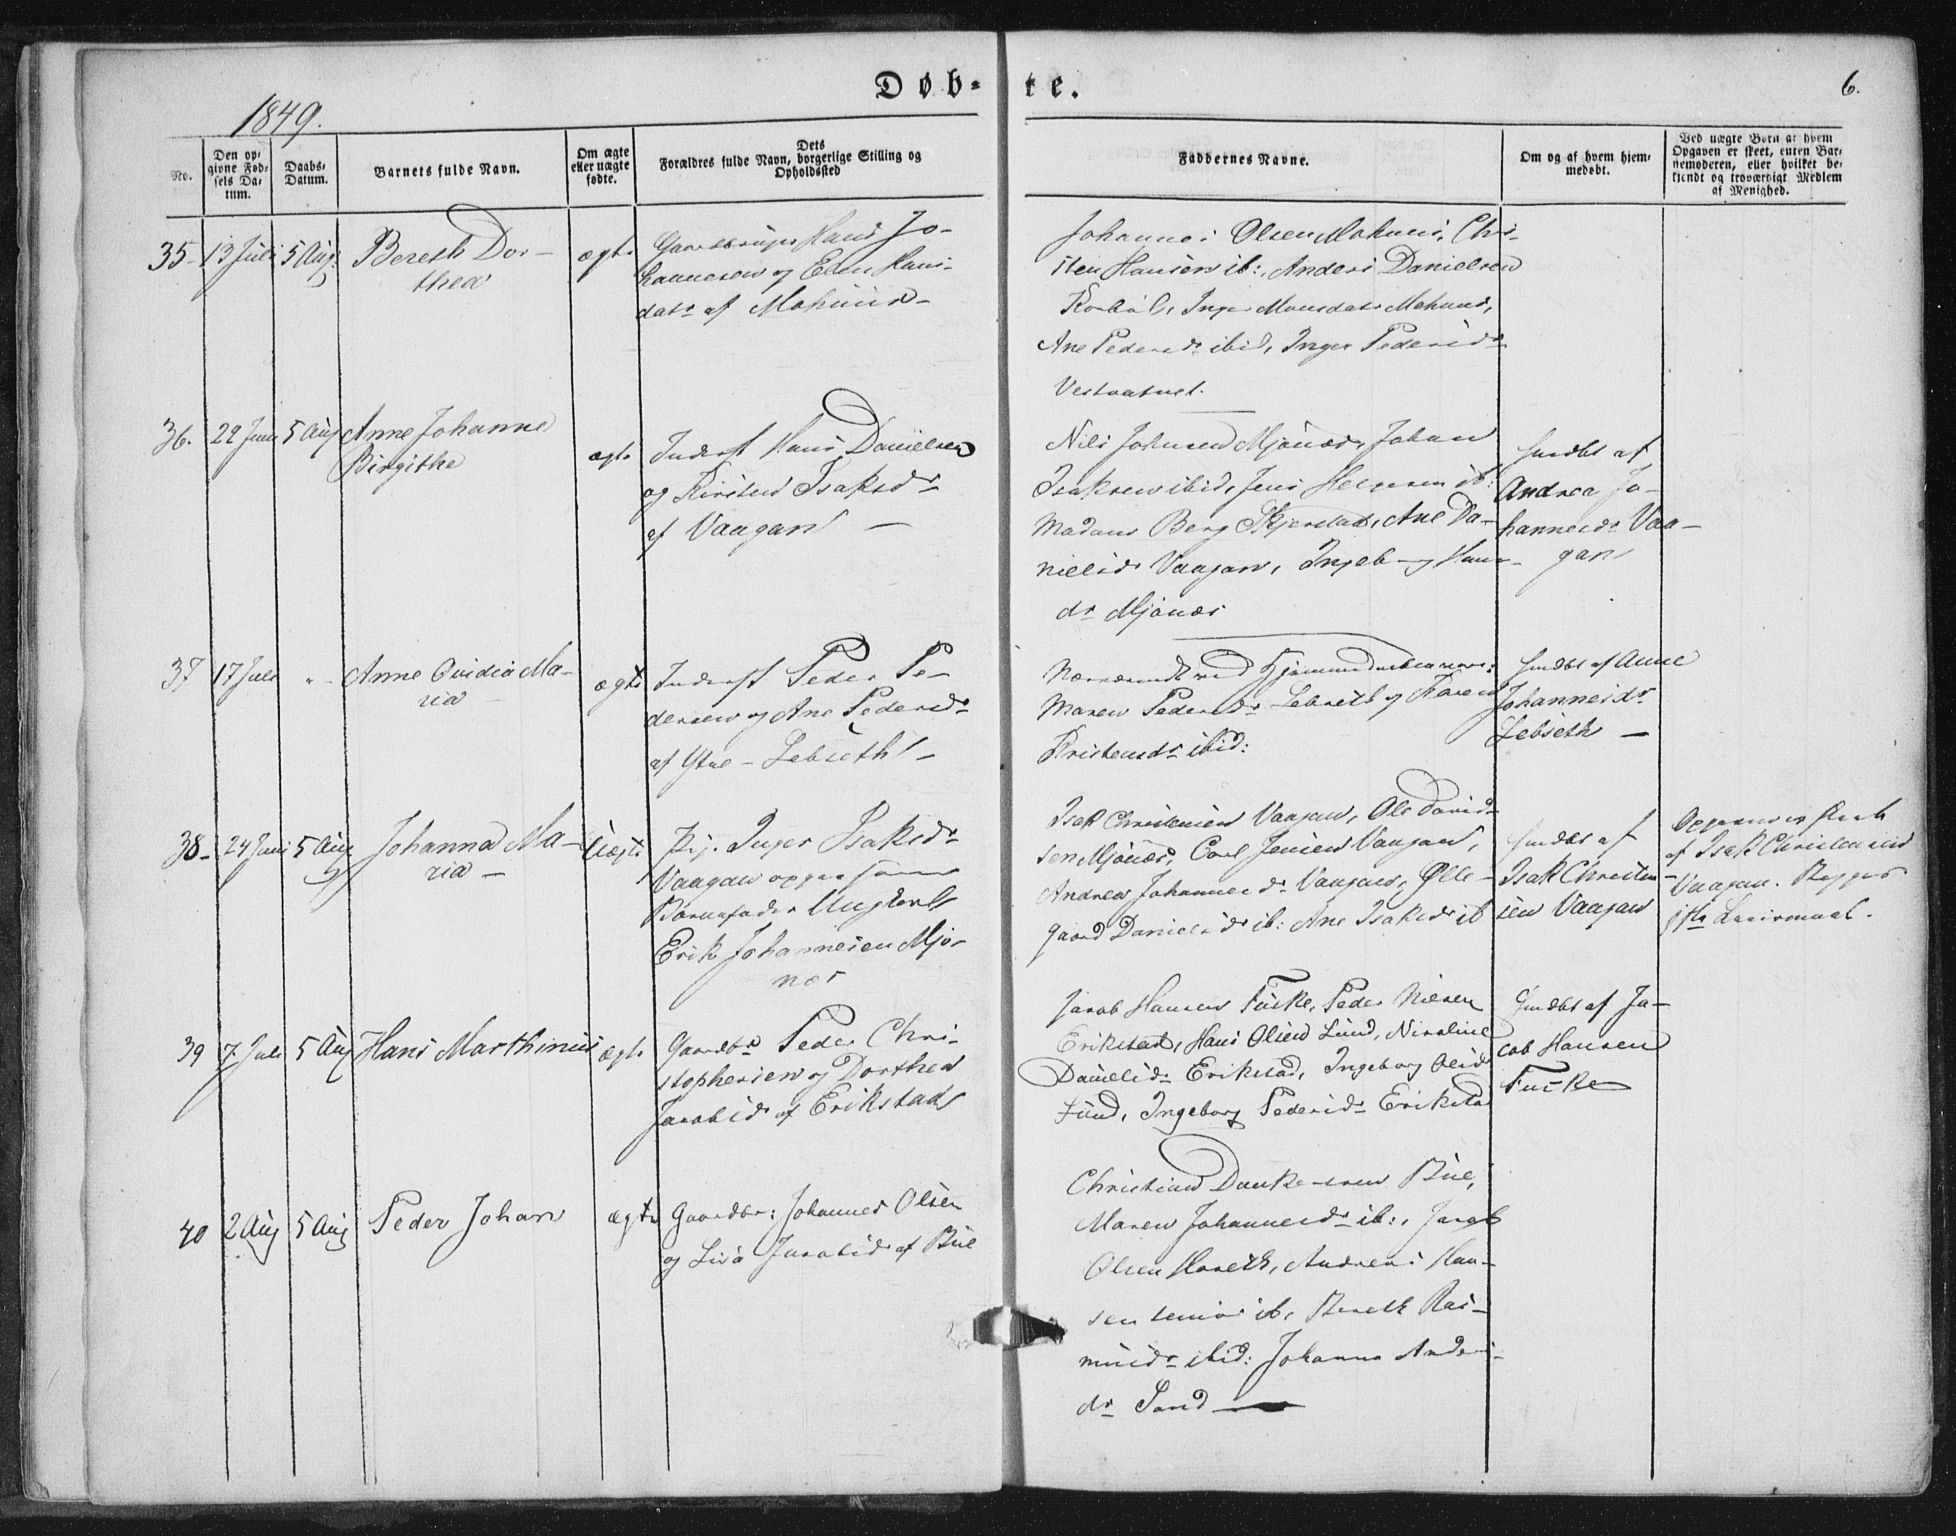 Døb-
te.
6.
1849.
No.
Den op-
givne Fød-
sels Da-
tum.
Daabs-
Datum.
Barnets fulde Navn.
Om ægte
eller uægte
fødte.
Dets
Forældres fulde Navn, borgerlige Stilling og
Opholdssted
Faddernes Navne.
Om og af hvem hjem-
medøbt.
Ved uægte Børn at hvem
Opgaven er skeet, enten Bar-
nemoderen, eller hvilket be-
kjendt og troværdigt Medlem
af Menighed.
35-
13 Juli
5 Aug:
Bereth Dor-
thea
ægte
Gaardbruger Hans Jo-
hannesen og Elen Hans-
datr af Mohuus-
Johannes Olsen Mohuus, Chri-
sten Hansen ib:, Anders Danielsen
Inger Monsdatr Mohuus,
Ane Pedersdr ibid, Inger Pedersdr
Vestvatnet.
36.
29 Juni
5 Aug
Anne Johanne
Birgithe
ægte
Inderst Hans Danielsen
og Kirsten Isaksdr
af Vaagan -
Nils Johnsen Mjønæs, Johan
Isaksen ibid, Jens ib:
Madame Berg Skjerstad, Ane Da-
nielsdr Vaagan, Ingeborg Hans-
dr Mjønæs
hmdbt af
Andrea Jo-
hannesdr Vaa-
gan
37
17 Juli
"-
Anne Ovidia Ma-
ria
ægte
Inderst Peder Pe-
dersen og Ane Pedersdr
af Ytre-Lebseth -
Nærværende ved Hjemmedaaben vare:
Maren Pedersdr Lebseth og Karen
Kristensdr ibid:
hmdbt af Anne
Johannesdr
Lebseth -
38-
24 Juni
5 Aug
Johanna Ma-
ria -
Uægte
Pig. Inger Isaksdr
Vaagan som
Barnefader Ungkarl
Erik Johannesen Mjø-
næs
Isak Christensen Vaagan, Ole David-
sen Mjønæs, Carl Jensen Vaagan,
Andrea Johannesdr Vaagan, Olle-
gaard Danielsdr ib: Ane Isaksdr ib
hmdbt af
Isak Christen-
sen Vaagan
Opgaven er skeet
af Isak Christensen
Vaagan. Begges
1ste Leiermaal.
39
7 Juli
5 Aug
Hans Marthinus
ægte
Gaardbr Peder Chri-
stophersen og Dorthea
Jacobsdr af Erikstad
Jacob Hansen Fuske, Peder Nilsen
Erikstad, Hans Olsen Lund, Nicoline
Danielsdr Erikstad, Ingeborg Olsdr
Lund, Ingeborg Pedersdr Erikstad
hmdbt af Ja-
cob Hansen
Fuske
40
2 Aug
5 Aug
Peder Johan
ægte
Gaardbr: Johannes Olsen
og Liva Jacobsdr af Bue
Christian Danielsen Bue,
Maren Johannesdr ib:, Jacob
Olsen Hareth, Andreas Han-
sen senior ib, Bereth Ras-
musdr ibid: Johanna Anders-
dr Sand